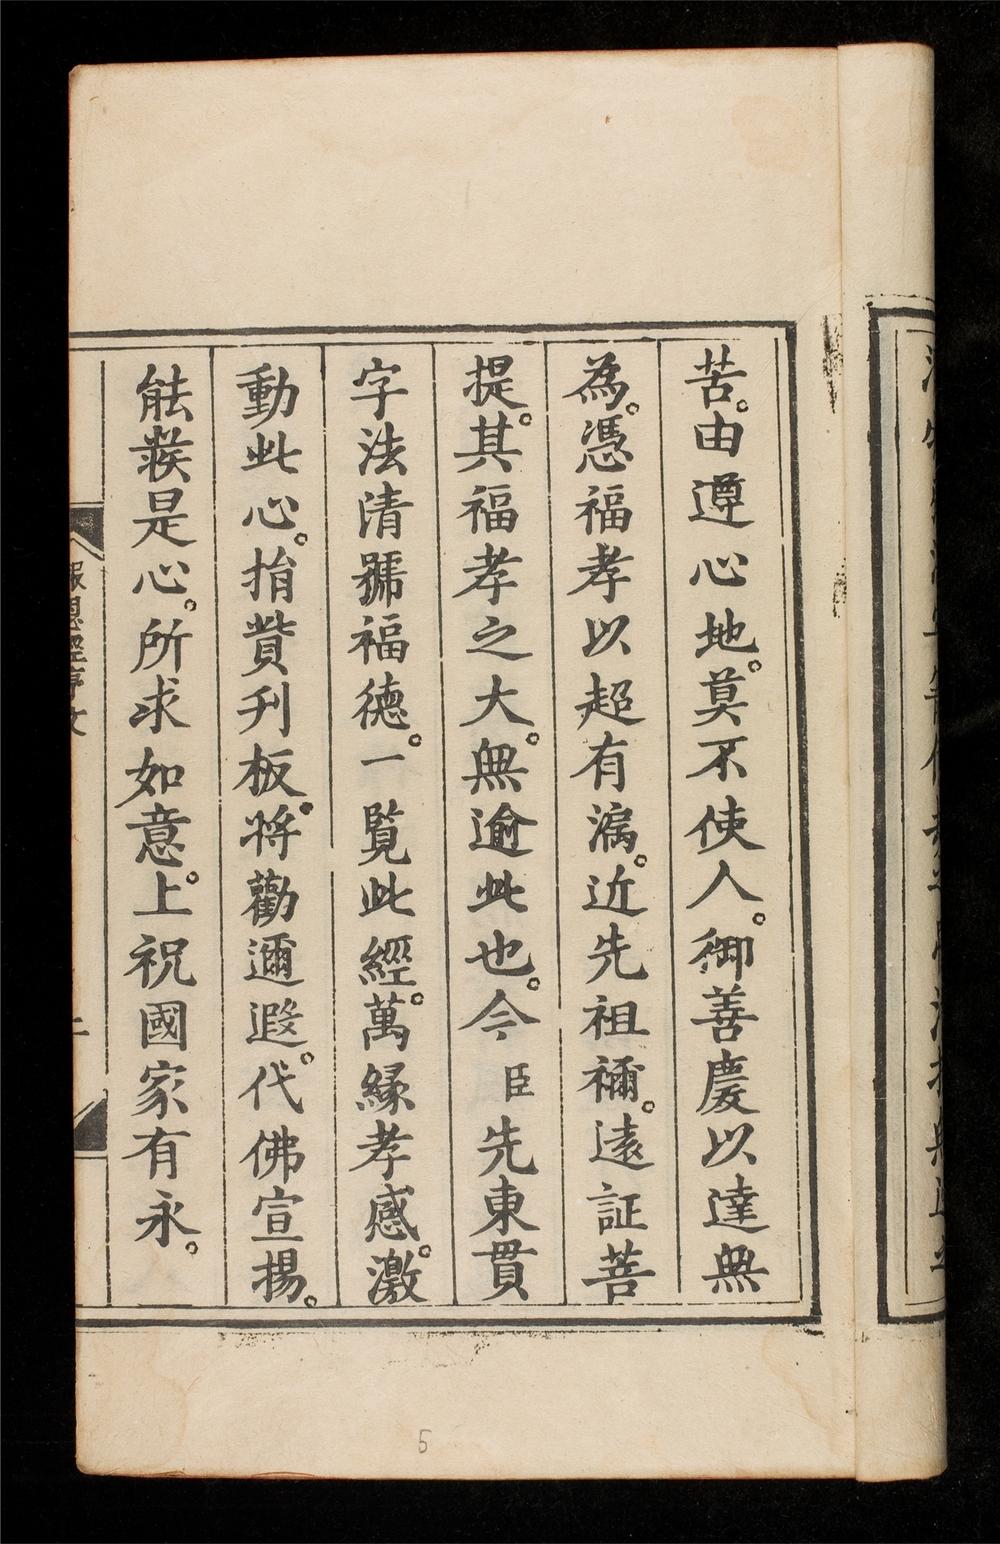 苦。由遵心地。莫不使人。御善慶以達無
為。憑福孝以超有漏。近先祖禰。遠証菩
提。其福孝之大。無逾此也。今臣先東貫
字法清號福德。一覽此經。萬緣孝感。激
動此心。捐貲刋板。將勸邇遐。代佛宣揚。
能發是心。所求如意。上祝國家有永。
報恩經序文